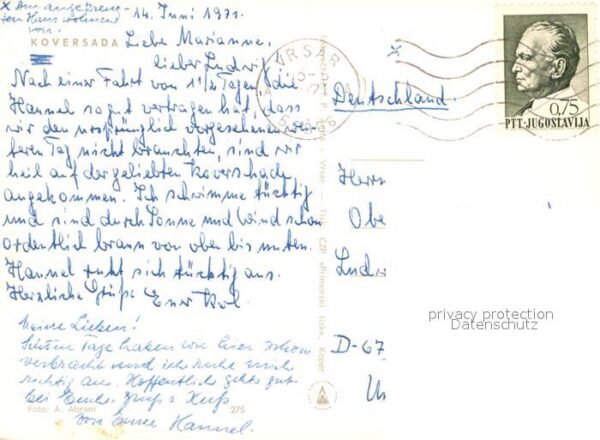 x Am angekreuz-
ten Haus wohnen
wir.
14. Juni 1971.
KOVERSADA
Liebe Marianne,
lieber Ludwig!
Nach einer Fahrt von 1 1/2 Tagen, die
Hannel so gut vertragen hat, dass
wir den ursprünglich vorgesehenen wei-
teren Tag nicht brauchten, sind wir
heil auf der geliebten Koversada
angekommen. Ich schwimme tüchtig
und sind durch Sonne und Wind schon
ordentlich braun von oben bis unten.
Hannel ruht sich tüchtig aus.
Herzliche Grüße Euer
Meine Lieben!
Schöne Tage haben wir hier schon
verbracht und ich ruhe mich
richtig aus. Hoffentlich gehts gut
bei Euch. Gruß + Kuß
von Eurer Hannel.
Foto: A. Abram
275
VRSAR
x
Deutschland.
0,75
PTT-JUGOSLAVIJA
Herrn
Obe
Ludw
D-67
privacy protection
Datenschutz